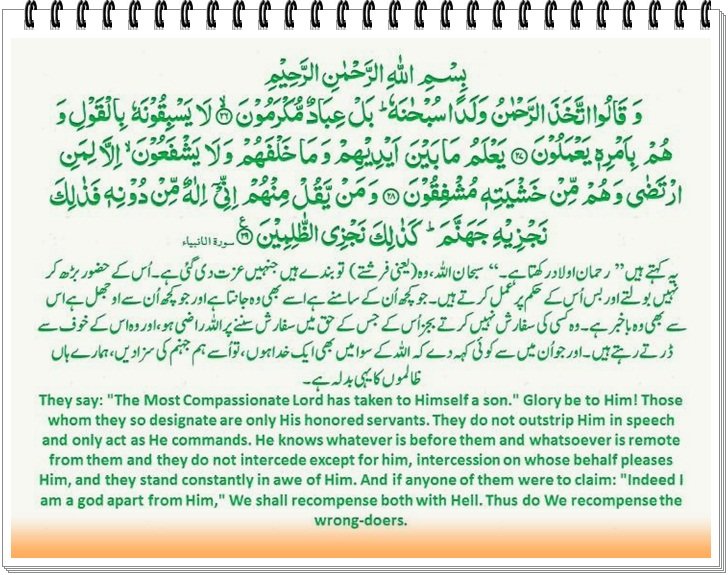 بِسْمِ اللهِ الرَّحْمٰنِ الرَّحِيْمِ
وَ قَالُوا اتَّخَذَ الرَّحْمٰنُ وَلَدًا سُبْحٰنَهٗ ؕ بَلْ عِبَادٌ مُّكْرَمُوْنَ ۙ﴿۲۶﴾ لَا يَسْبِقُوْنَهٗ بِالْقَوْلِ وَ
هُمْ بِاَمْرِهٖ يَعْمَلُوْنَ ﴿۲۷﴾ يَعْلَمُ مَا بَيْنَ اَيْدِيْهِمْ وَ مَا خَلْفَهُمْ وَ لَا يَشْفَعُوْنَ ۙ اِلَّا لِمَنِ
ارْتَضٰى وَ هُمْ مِّنْ خَشْيَتِهٖ مُشْفِقُوْنَ ﴿۲۸﴾ وَ مَنْ يَّقُلْ مِنْهُمْ اِنِّيْۤ اِلٰهٌ مِّنْ دُوْنِهٖ فَذٰلِكَ
نَجْزِيْهِ جَهَنَّمَ ؕ كَذٰلِكَ نَجْزِى الظّٰلِمِيْنَ ﴿۲۹﴾ ع سورة الانبياء
یہ کہتے ہیں ”رحمان اولاد رکھتا ہے۔“ سبحان اللہ، وہ (یعنی فرشتے) تو بندے ہیں جنہیں عزت دی گئی ہے۔ اُس کے حضور بڑھ کر
نہیں بولتے اور بس اُس کے حکم پر عمل کرتے ہیں۔ جو کچھ اُن کے سامنے ہے اسے بھی وہ جانتا ہے اور جو کچھ اُن سے اوجھل ہے اس
سے بھی وہ باخبر ہے۔ وہ کسی کی سفارش نہیں کرتے بجز اُس کے جس کے حق میں سفارش سننے پر اللہ راضی ہو، اور وہ اس کے خوف سے
ڈرتے رہتے ہیں۔ اور جو اُن میں سے کوئی کہہ دے کہ اللہ کے سوا میں بھی ایک خدا ہوں، تو اُسے ہم جہنم کی سزا دیں، ہمارے ہاں
ظالموں کا یہی بدلہ ہے۔
They say: "The Most Compassionate Lord has taken to Himself a son." Glory be to Him! Those
whom they so designate are only His honored servants. They do not outstrip Him in speech
and only act as He commands. He knows whatever is before them and whatsoever is remote
from them and they do not intercede except for him, intercession on whose behalf pleases
Him, and they stand constantly in awe of Him. And if anyone of them were to claim: "Indeed I
am a god apart from Him," We shall recompense both with Hell. Thus do We recompense the
wrong-doers.